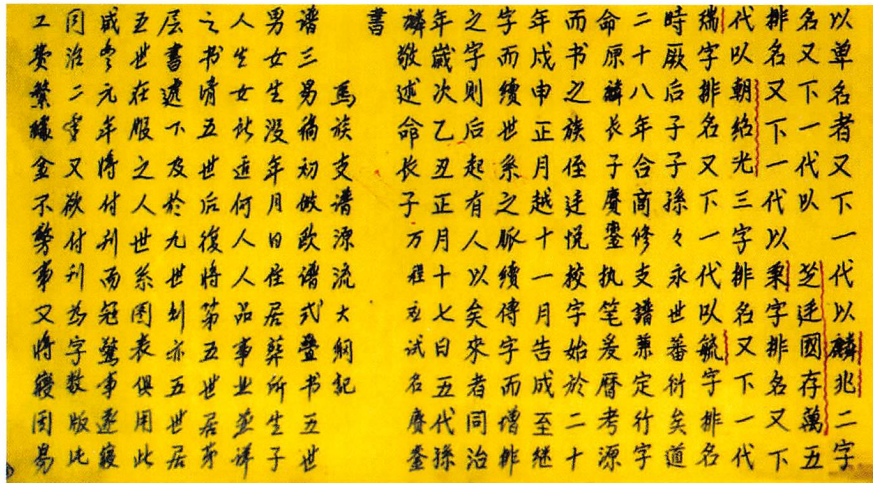 以單名者又下一代以麟兆二字
名又下一代以 芝廷國存萬五
排名又下一代以秉字排名又下
代以朝绍光三字排名又下一代
瑞字排名又下一代以毓字排名
時厥后子子孫々永世蕃衍矣道
二十八年合商修支譜兼定行字
命原麟长子賡銮执笔爰曆考源
而书之族侄廷悦校字始於二十
年戊申正月越十一月告成至继
字而續世系之脈續傳字而增排
之字則后起有人以矣來者同治
年歲次乙丑正月十七日五代孫
麟敬述命长子方程应试名賡銮
書
馬族支谱源流大綱記
谱三易稿初倣欧谱式叠书五世
男女生没年月日住居葬所生子
人生女几适何人人品事业並详
之书清五世后復将第五世居第
层書遞下及於九世别亦五世居
五世在服之人世系图表俱用此
咸豐元年将付刊而冠事遂寝
同治二年又欲付刊为字数版
工费繁金不事又将寝因易